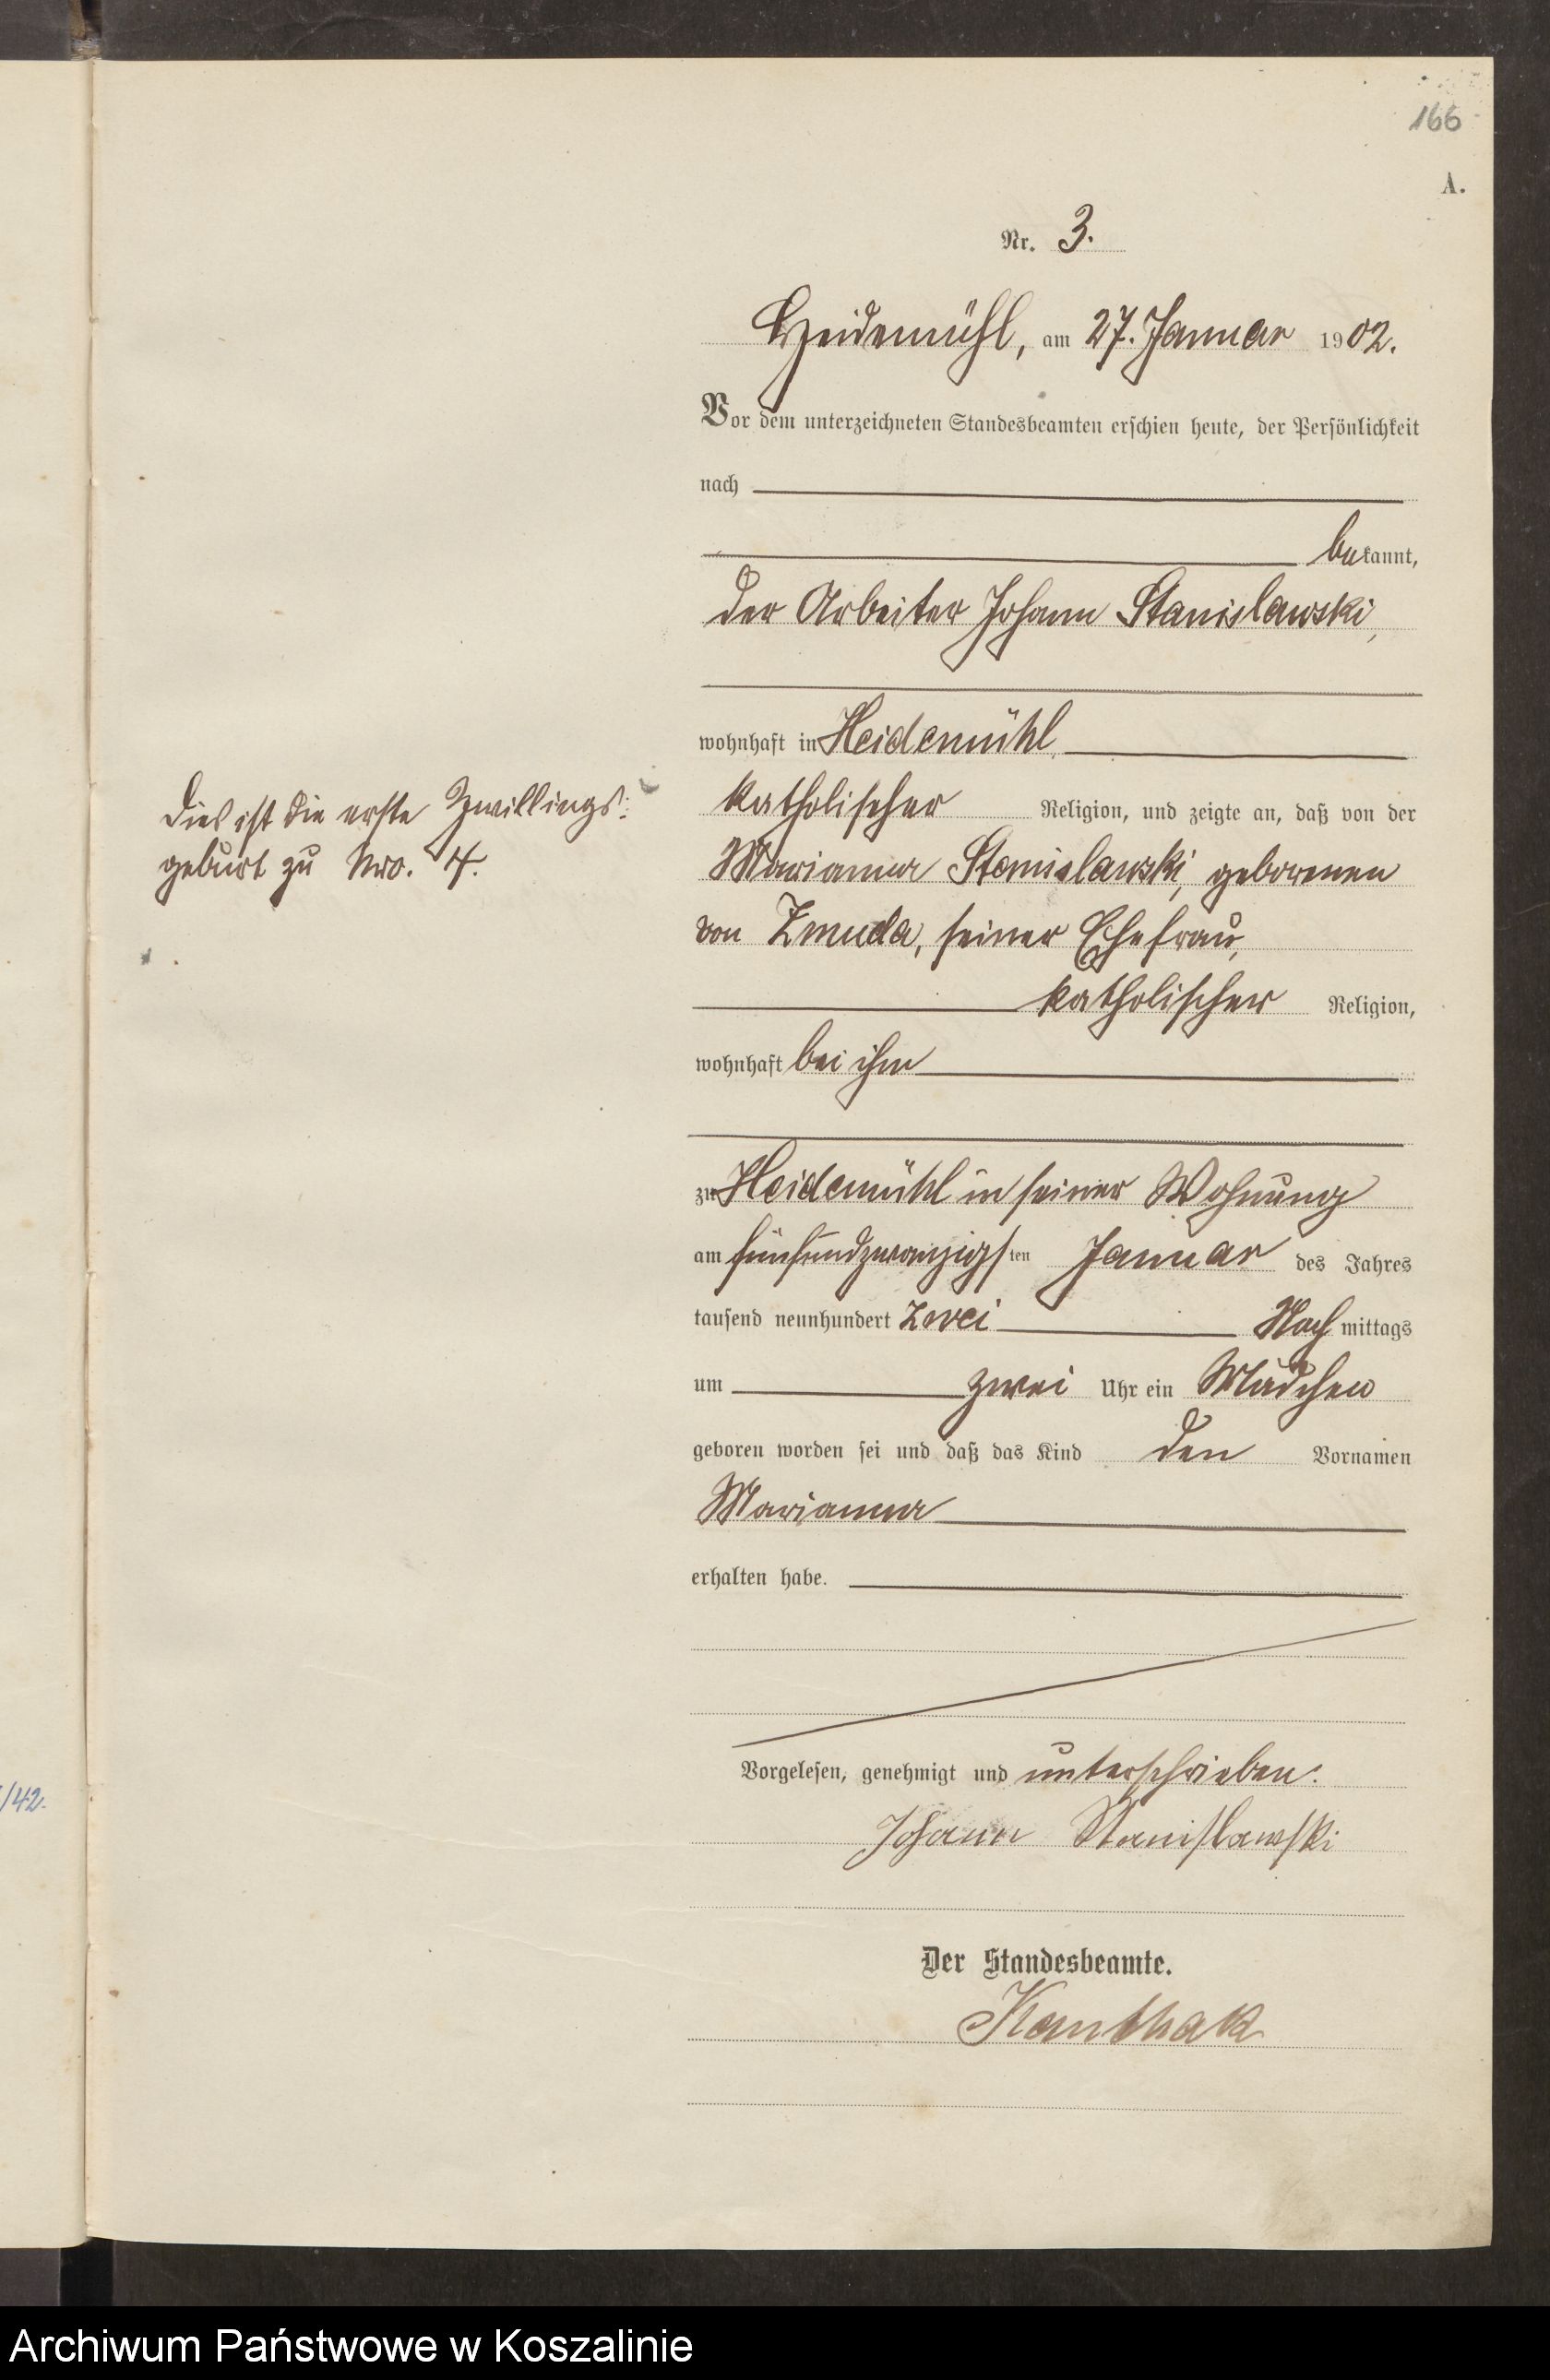 166
A.
Nr. 3.
Heidemühl, am 27. Januar 1902.
Vor dem unterzeichneten Standesbeamten erschien heute, der Persönlichkeit
nach
bekannt,
der Arbeiter Johann Stanislawski,
wohnhaft in Heidemühl
katholischer Religion, und zeigte an, daß von der
Marianna Stanislawski, geborenen
von Zmuda, seiner Ehefrau,
katholischer Religion,
wohnhaft bei ihm
zu Heidemühl in seiner Wohnung
am fünfundzwanzigsten Januar des Jahres
tausend neunhundert zwei Nachmittags
um zwei Uhr ein Mädchen
geboren worden sei und daß das Kind den Vornamen
Marianna
erhalten habe.
Vorgelesen, genehmigt und unterschrieben.
Johann Stanislawski
Der Standesbeamte.
Kanthak
Dies ist die erste Zwillings:
geburt zu Nro. 4.
/42.
Archiwum Państwowe w Koszalinie